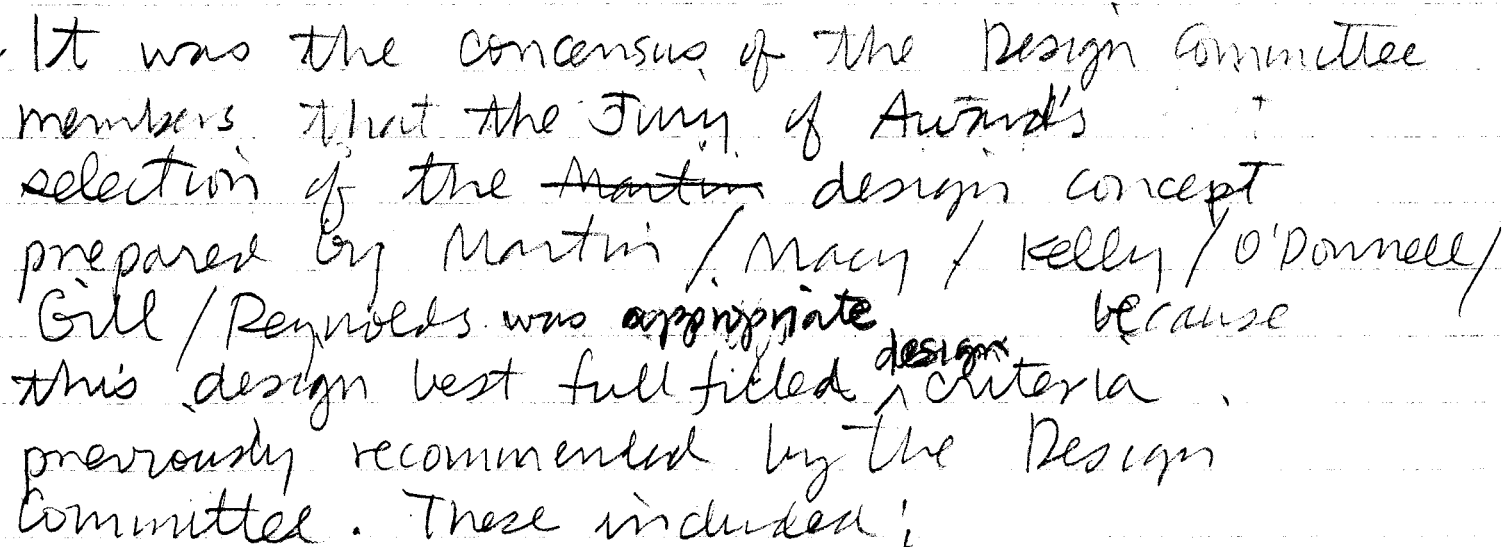 It was the concensus of the Design Committee
members that the Jury of Award's
selection of the Martin design concept
prepared by Martin / Macy / Kelly / O'Donnell /
Gill / Reynolds was appropriate because
this design best fullfilled design criteria
previously recommended by the Design
Committee. These included: